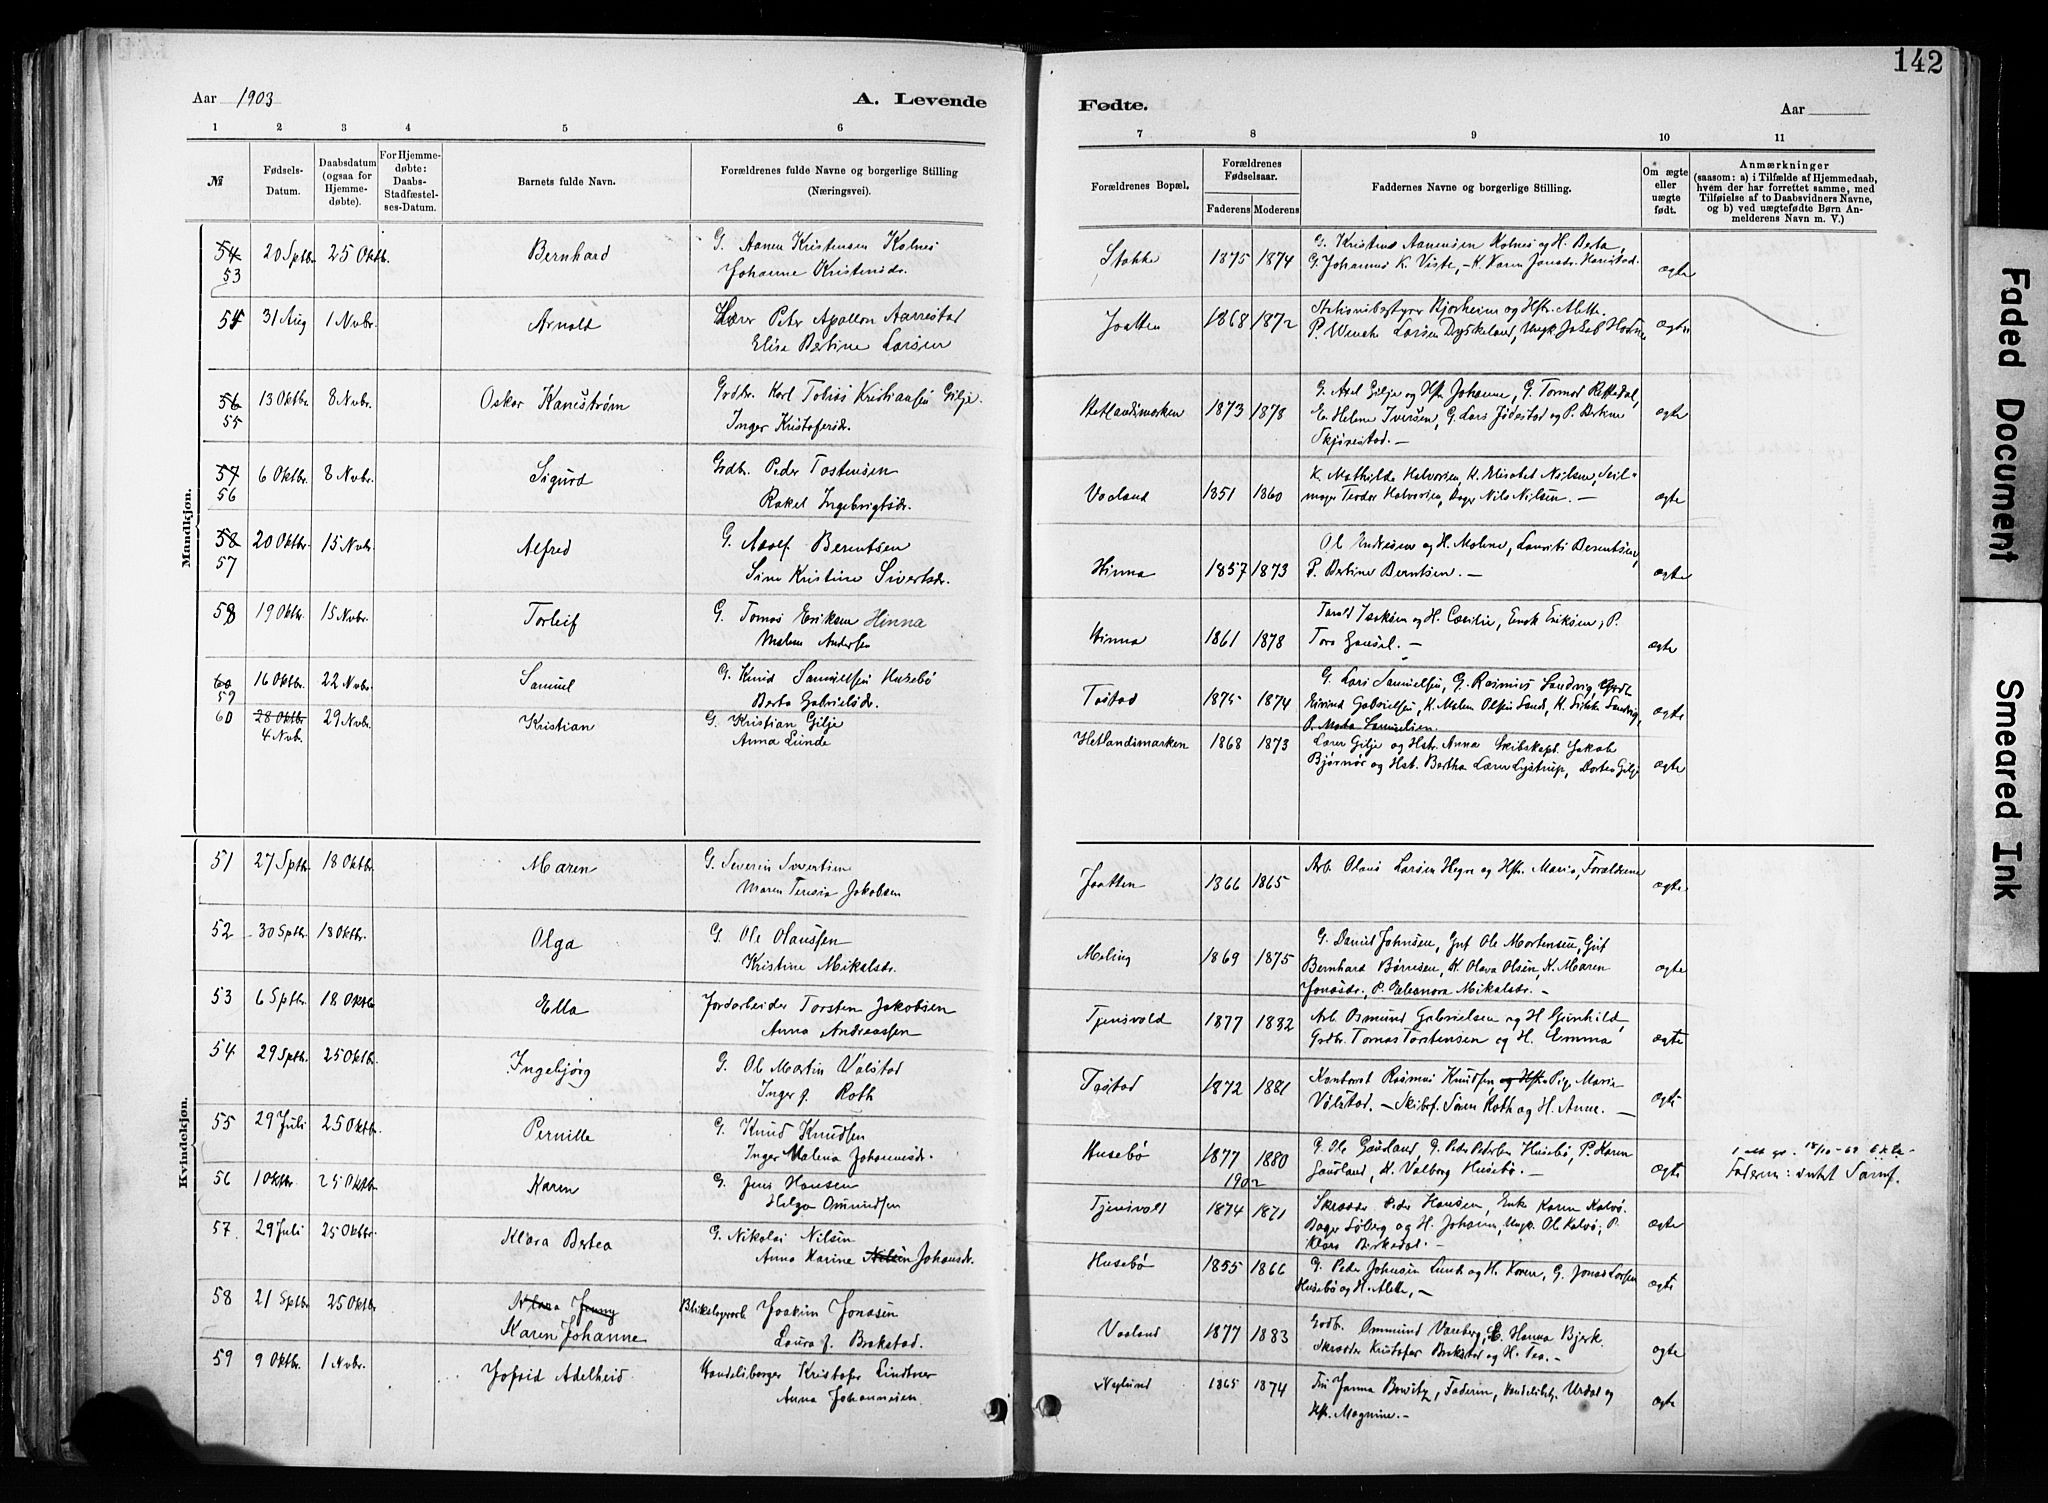 142
Aar 1903
A. Levende
Fødte.
Aar
1 2 3 4 5 6 7 8 9 10 11
№
Fødsels-Datum.
Daabsdatum (ogsaa for Hjemme-døbte).
For Hjemme-døbte: Daabs-Stadfæstel-ses-Datum.
Barnets fulde Navn.
Forældrenes fulde Navne og borgerlige Stilling (Næringsvei).
Forældrenes Bopæl.
Forældrenes Fødselsaar.
Faderens Moderens
Faddernes Navne og borgerlige Stilling.
Om ægte eller uægte født.
Anmærkninger
(saasom: a) i Tilfælde af Hjemmedaab, hvem der har forrettet samme, med Tilføielse af to Daabsvidners Navne, og b) ved uægtefødte Børn An-melderens Navn m. V.)
Mandkjøn.
54 53 20 Sptbr. 25 Oktb. Bernhard G. Aanen Kristensen Kolnes
Johanne Kristensdr. Stokke 1875 1874 G. Kristens Aanensen Kolnes og H. Berta,
G. Johannes K. Viste, - K. Karen Jonasdr. Harestad. ægte
54 31 Aug 1 Nvbr. Arnold Lærer Peter Apollon Aarrestad
Elise Bertine Larsen Jaatten 1868 1872 Stationsbestyrer Bjorheim og Hstr. Alette.
P. Wenche Larsen Dyskeland, Ungk. Jakob ægte
56 55 13 Oktbr. 8 Nvbr. Oskar Kanestrøm Grdbr. Karl Tobias Kristiansen Gilje.
Inger Kristofersdr. Hetlandsmarken 1873 1878 G. Axel Gilje og Hstr. Johanne, G. Tormod Rettedal,
E. Helene Iversen, G. Lars Jødestad og P. Bertine
Skjørestad. - ægte
57 56 6 Oktbr. 8 Nvbr. Sigurd Grdbr. Peder Tostensen
Rakel Ingebrigtsdr. Vaaland 1851 1860 K. Mathilde Halvorsen, K. Elisabet Nilsen, Seil-
mager Teodor Halvorsen, Bager Nils Nilsen. - ægte
58 57 20 Oktbr. 15 Nvbr. Alfred G. Adolf Berentsen
Sine Kristine Sivertsdr. Hinna 1857 1873 Ol. Endresen og H. Malene, Laurits Berentsen,
P. Bertine Berntsen. - ægte
58 19 Oktbr. 15 Nvbr. Torleif G. Tomas Eriksen Hinna
Malene Andersen Hinna 1861 1878 Tarald Isaksen og H. Cæcilie, Enok Eriksen, P.
Tora Gausel. - ægte
60 59 16 Oktbr. 22 Nvbr. Samuel G. Knud Samuelsen Husebø
Berta Gabrielsdr. Tastad 1875 1874 G. Lars Samuelsen, G. Rasmus Sandvig, Grdb.
Eivind Gabrielsen, K. Malene Olsen Sande, K. Sandvig,
P. Marta Samuelsen. ægte
60 28 Oktbr 4 Nvb. 29 Nvbr. Kristian G. Kristian Gilje
Anna Lunde Hetlandsmarken 1868 1873 Lærer Gilje og Hstr. Anna Skibskapt. Jakob
Bjørnør og Hst. Bertha Lærer Lystrup, Dortea Gilje ægte
Kvindekjøn.
51 27 Sptb. 18 Oktbr. Maren G. Severin Sivertsen
Maren Teresia Jakobsen Jaatten 1866 1865 Arb. Olaus Larsen Hegre og Hstr. Maria, Forældrene ægte
52 30 Sptb. 18 Oktbr. Olga G. Ole Olaussen
Kristine Mikalsdr. Meling 1869 1875 G. Daniel Johnsen, Gut Ole Mortensen, Gut
Bernhard Børresen, K. Olava Olsen, K. Maren
Jonasdr., P. Eleanora Mikalsdr. - ægte
53 6 Sptbr. 18 Oktbr Ella Jordarbeider Torsten Jakobsen
Anna Andreassen Tjensvold 1877 1882 Arb. Osmund Gabrielsen og H. Gunhild,
Grdbr. Tomas Torstensen og H. Emma ægte
54 29 Sptbr. 25 Oktbr. Ingebjørg G. Ole Martin Vølstad
Inger f. Roth Tastad 1872 1881 Kontorist Rasmus Knudsen og Hstr. Pige Maria
Vølstad. - Skibsf. Sören Roth og H. Anne. - ægte
55 29 Juli 25 Oktbr. Pernille G. Knud Knudsen
Inger Malena Johannesdr. Husebø 1877 1880 G. Ole Gausland, G. Peder Pedersen Husebø, P. Karen
Gausland, K. Valborg Husebø. - ægte
Faderen: intet Samf.
56 1 Oktbr. 25 Oktbr Karen G. Jens Hansen
Helga Omundsen Tjensvold 1902 1874 1871 Skrædder Peder Hansen, Enke Karen Kalvø.
Bager Søberg og H. Johanna, Ungk. Ole Kalvø, P.
Klara Birkedal. - ægte
57 29 Juli 25 Oktbr. Klara Bertea G. Nikolai Nilsen
Anna Karine Nilsen Johansdr. Husebø 1855 1866 G. Peder Johnsen Lunde og H. Karen, G. Jonas Larsen
Husebø og H. Alette, - ægte
58 21 Sptbr 25 Oktbr Klara Jenny
Karen Johanne Blikslagersv. Joakim Jonasen
Laura f. Brekstad. Vaaland 1877 1883 Grdb. Ommund Vareberg, E. Hanna Bjerk.
Skrædder Kristofer Brekstad og H. Tea. - ægte
59 9 Oktbr. 1 Nvbr. Jofrid Adelheid Handelsborger Kristofer Lindtner
Anna Johannesen Nylund 1865 1874 Fru Janna Bowitz, Faderen, Handelsbetj. Urdal og
Hst. Magnine. - ægte
Faded Document
Smeared Ink